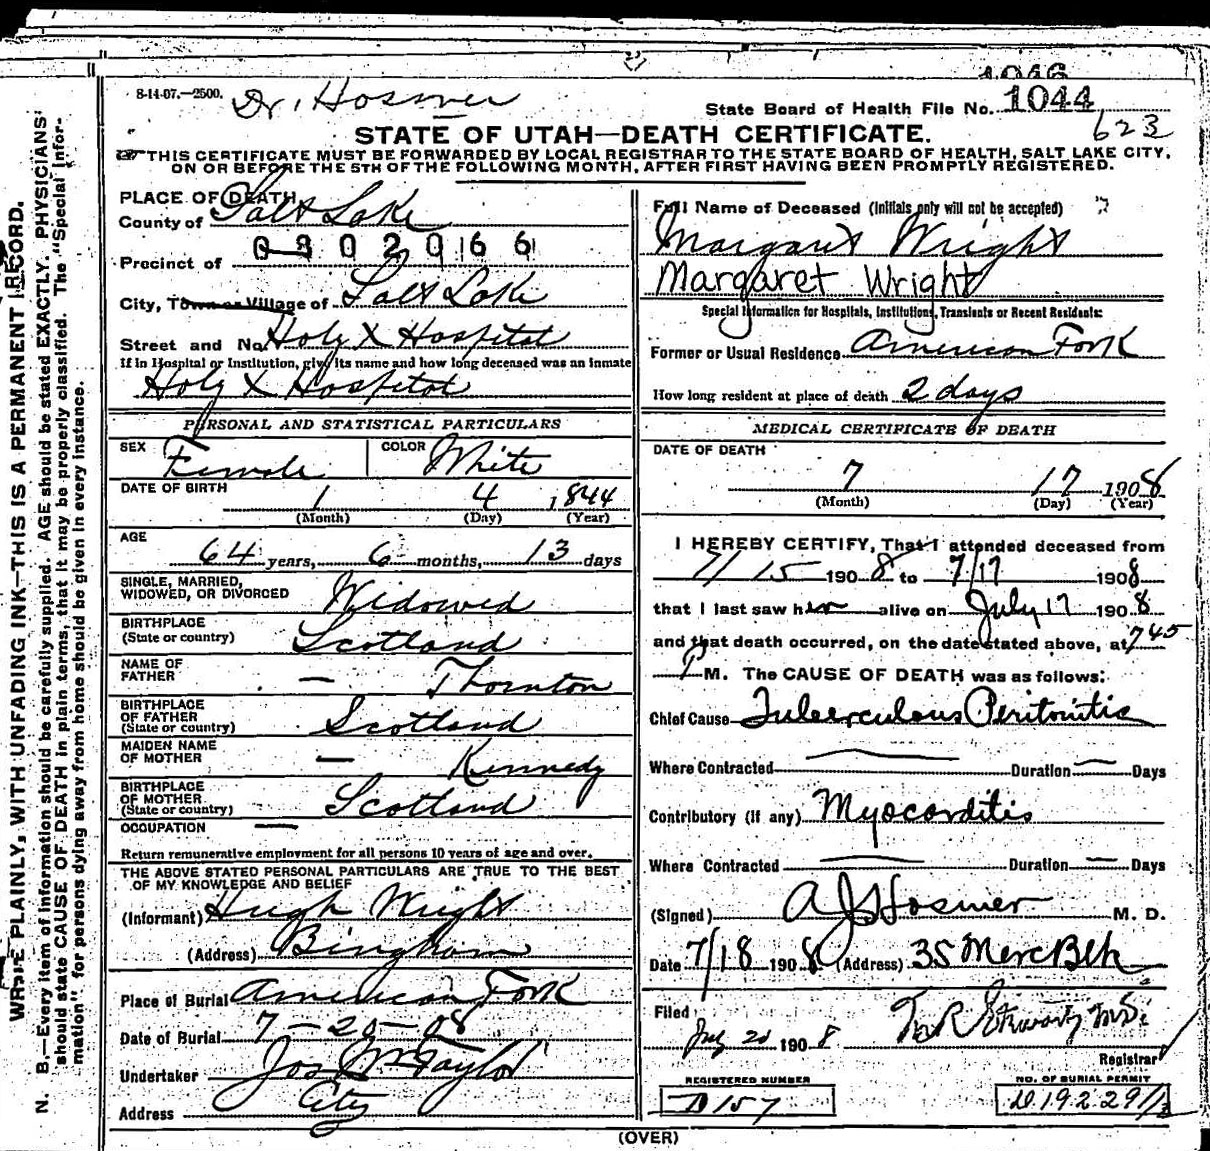 1046
8-14-07.—2500. Dr. Hosmer
State Board of Health File No. 1044
623
STATE OF UTAH—DEATH CERTIFICATE.
THIS CERTIFICATE MUST BE FORWARDED BY LOCAL REGISTRAR TO THE STATE BOARD OF HEALTH, SALT LAKE CITY,
ON OR BEFORE THE 5TH OF THE FOLLOWING MONTH, AFTER FIRST HAVING BEEN PROMPTLY REGISTERED.
PLACE OF DEATH
County of Salt Lake
0302066
Precinct of
City, Town or Village of Salt Lake
Street and No. Holy X Hospital
If in Hospital or Institution, give its name and how long deceased was an inmate
Holy X Hospital
PERSONAL AND STATISTICAL PARTICULARS
SEX Female COLOR White
DATE OF BIRTH 1 4 1844
(Month) (Day) (Year)
AGE
64 years, 6 months, 13 days
SINGLE, MARRIED,
WIDOWED, OR DIVORCED Widowed
BIRTHPLACE
(State or country) Scotland
NAME OF
FATHER — Thornton
BIRTHPLACE
OF FATHER
(State or country) Scotland
MAIDEN NAME
OF MOTHER — Kennedy
BIRTHPLACE
OF MOTHER
(State or country) Scotland
OCCUPATION —
Return remunerative employment for all persons 10 years of age and over.
THE ABOVE STATED PERSONAL PARTICULARS ARE TRUE TO THE BEST
OF MY KNOWLEDGE AND BELIEF
(Informant) Hugh Wright
(Address) Bingham
Place of Burial American Fork
Date of Burial 7-20-08
Undertaker Jos Wm Taylor
Address City
Full Name of Deceased (Initials only will not be accepted)
Margaret Wright
Margaret Wright
Special Information for Hospitals, Institutions, Transients or Recent Residents:
Former or Usual Residence American Fork
How long resident at place of death 2 days
MEDICAL CERTIFICATE OF DEATH
DATE OF DEATH
7 17 1908
(Month) (Day) (Year)
I HEREBY CERTIFY, That I attended deceased from
7/15 1908 to 7/17 1908
that I last saw her alive on July 17 1908
and that death occurred, on the date stated above, at 745
P M. The CAUSE OF DEATH was as follows:
Chief Cause Tuberculous Peritonitis
Where Contracted — Duration — Days
Contributory (if any) Myocarditis
Where Contracted — Duration — Days
(Signed) A J Hosmer M. D.
Date 7/18 1908 (Address) 35 Merc Blk
Filed
July 20 1908
Registrar
REGISTERED NUMBER
D 157
NO. OF BURIAL PERMIT
(OVER)
WRITE PLAINLY, WITH UNFADING INK—THIS IS A PERMANENT RECORD.
N. B.—Every item of information should be carefully supplied. AGE should be stated EXACTLY. PHYSICIANS
should state CAUSE OF DEATH in plain terms, that it may be properly classified. The "Special Infor-
mation" for persons dying away from home should be given in every instance.